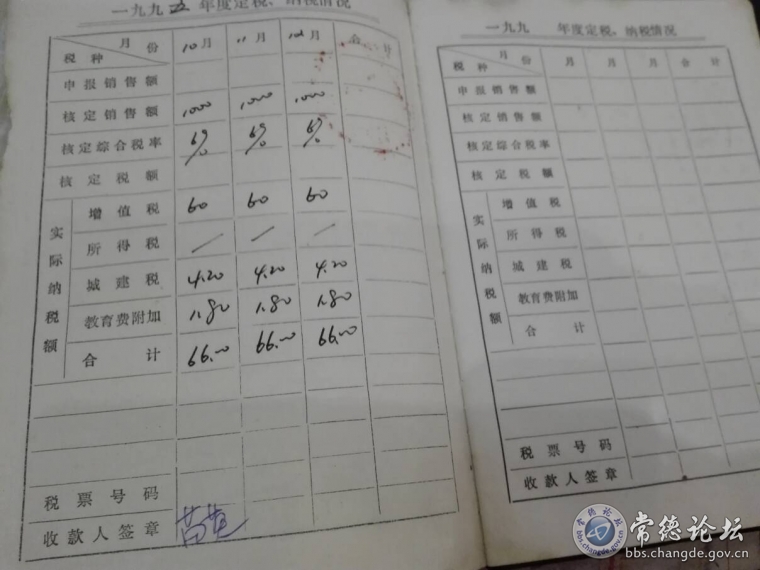 一九九五年度定税、纳税情况
税种 月份 10月 11月 12月 合计
申报销售额
核定销售额 1000 1000 1000
核定综合税率 6% 6% 6%
核定税额
实际纳税额
增值税 60 60 60
所得税 / / /
城建税 4.20 4.20 4.20
教育费附加 1.80 1.80 1.80
合计 66.00 66.00 66.00
税票号码
收款人签章
一九九 年度定税、纳税情况
税种 月份 月 月 月 合计
申报销售额
核定销售额
核定综合税率
核定税额
实际纳税额
增值税
所得税
城建税
教育费附加
合计
税票号码
收款人签章
常德论坛
bbs.changde.gov.cn